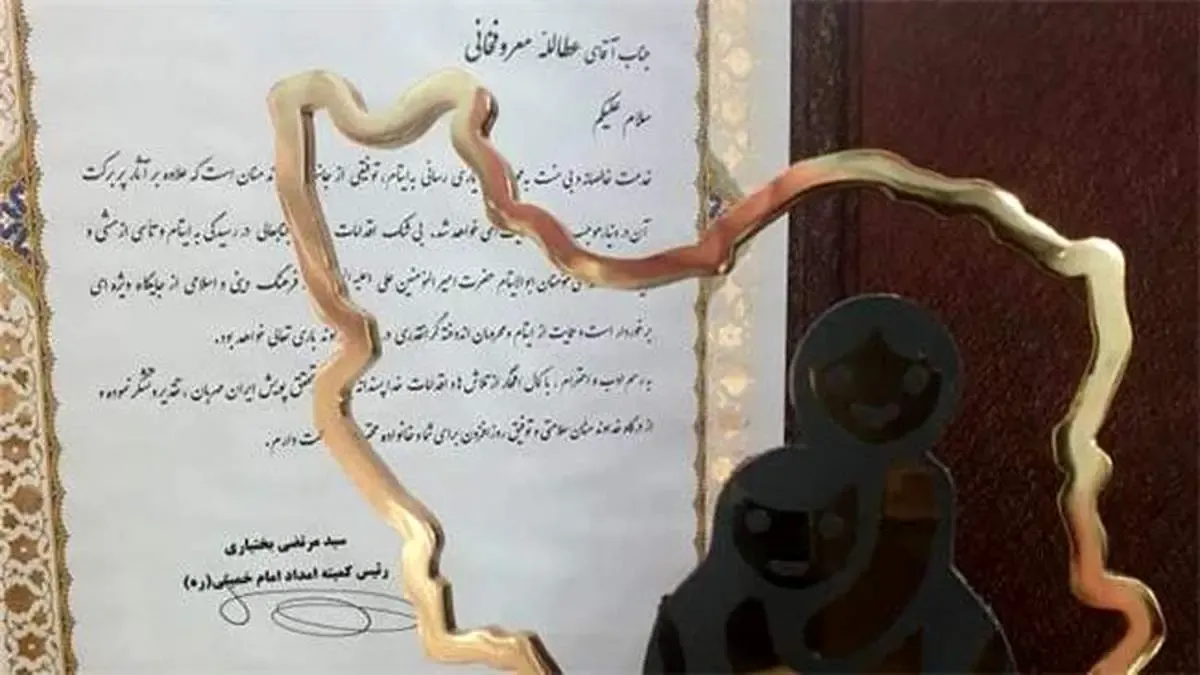 جناب آقای عطاالله معروفخانی
سلام علیکم
خدمت خالصانه و بی منت به یاری رسانی به ایتام، توفیقی از منان است که علاوه بر آثار پر برکت
آن در دنیا موجب خواهد شد. بی شک اقدامات جنابعالی در رسیدگی به ایتام و تأسی از مشی و
مؤمنان ابوالایتام حضرت امیرالمؤمنین علی فرهنگ دینی و اسلامی از جایگاه ویژه ای
برخوردار است و حمایت از ایتام و محرومان اندوخته گرانقدری در باری تعالی خواهد بود.
به رسم ادب و احترام، با کمال افتخار از تلاش ها و اقدامات خداپسندانه تحقق پویش ایران مهربان، تقدیر و تشکر نموده و
از درگاه خداوند منان سلامتی و توفیق روزافزون برای شما و خانواده دارم.
سید مرتضی بختیاری
رئیس کمیته امداد امام خمینی(ره)